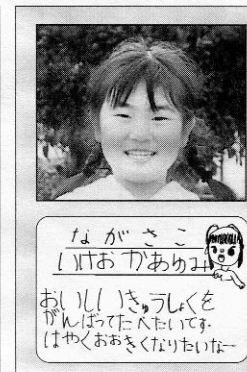 ながさこ
いけおかあゆみ
おいしいきゅうしょくを
がんばってたべたいです。
はやくおおきくなりたいなー